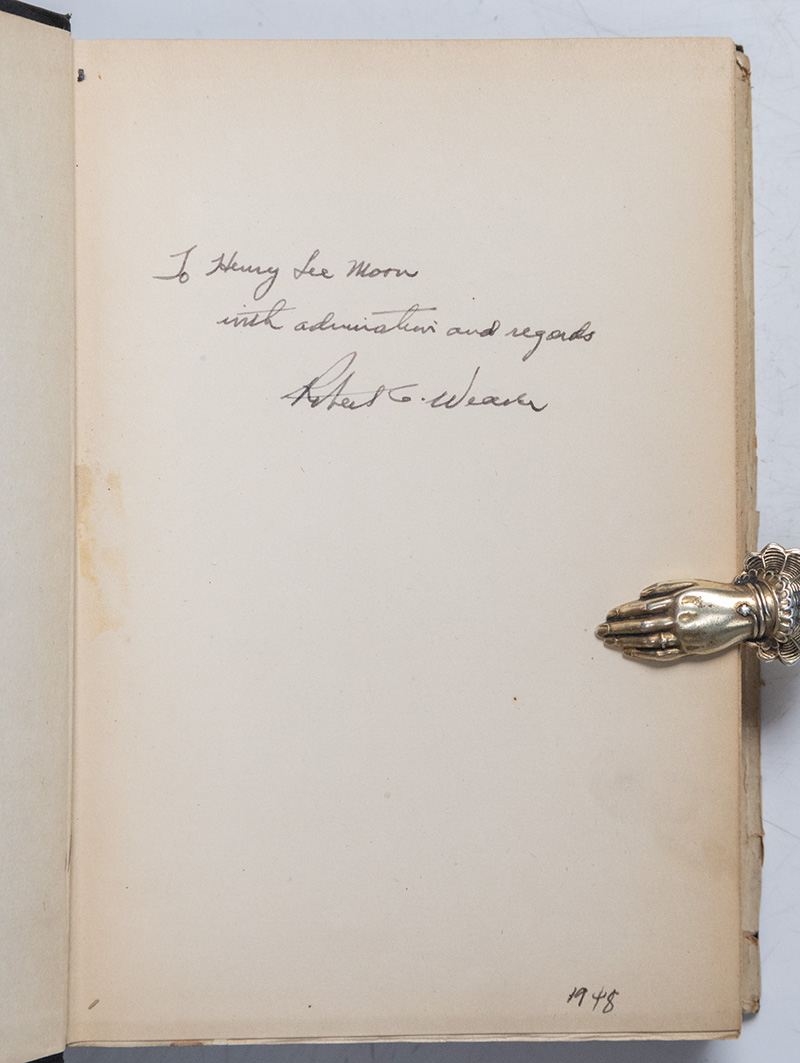 To Henry Lee Moon
with admiration and regards
Robert C. Weaver
1948